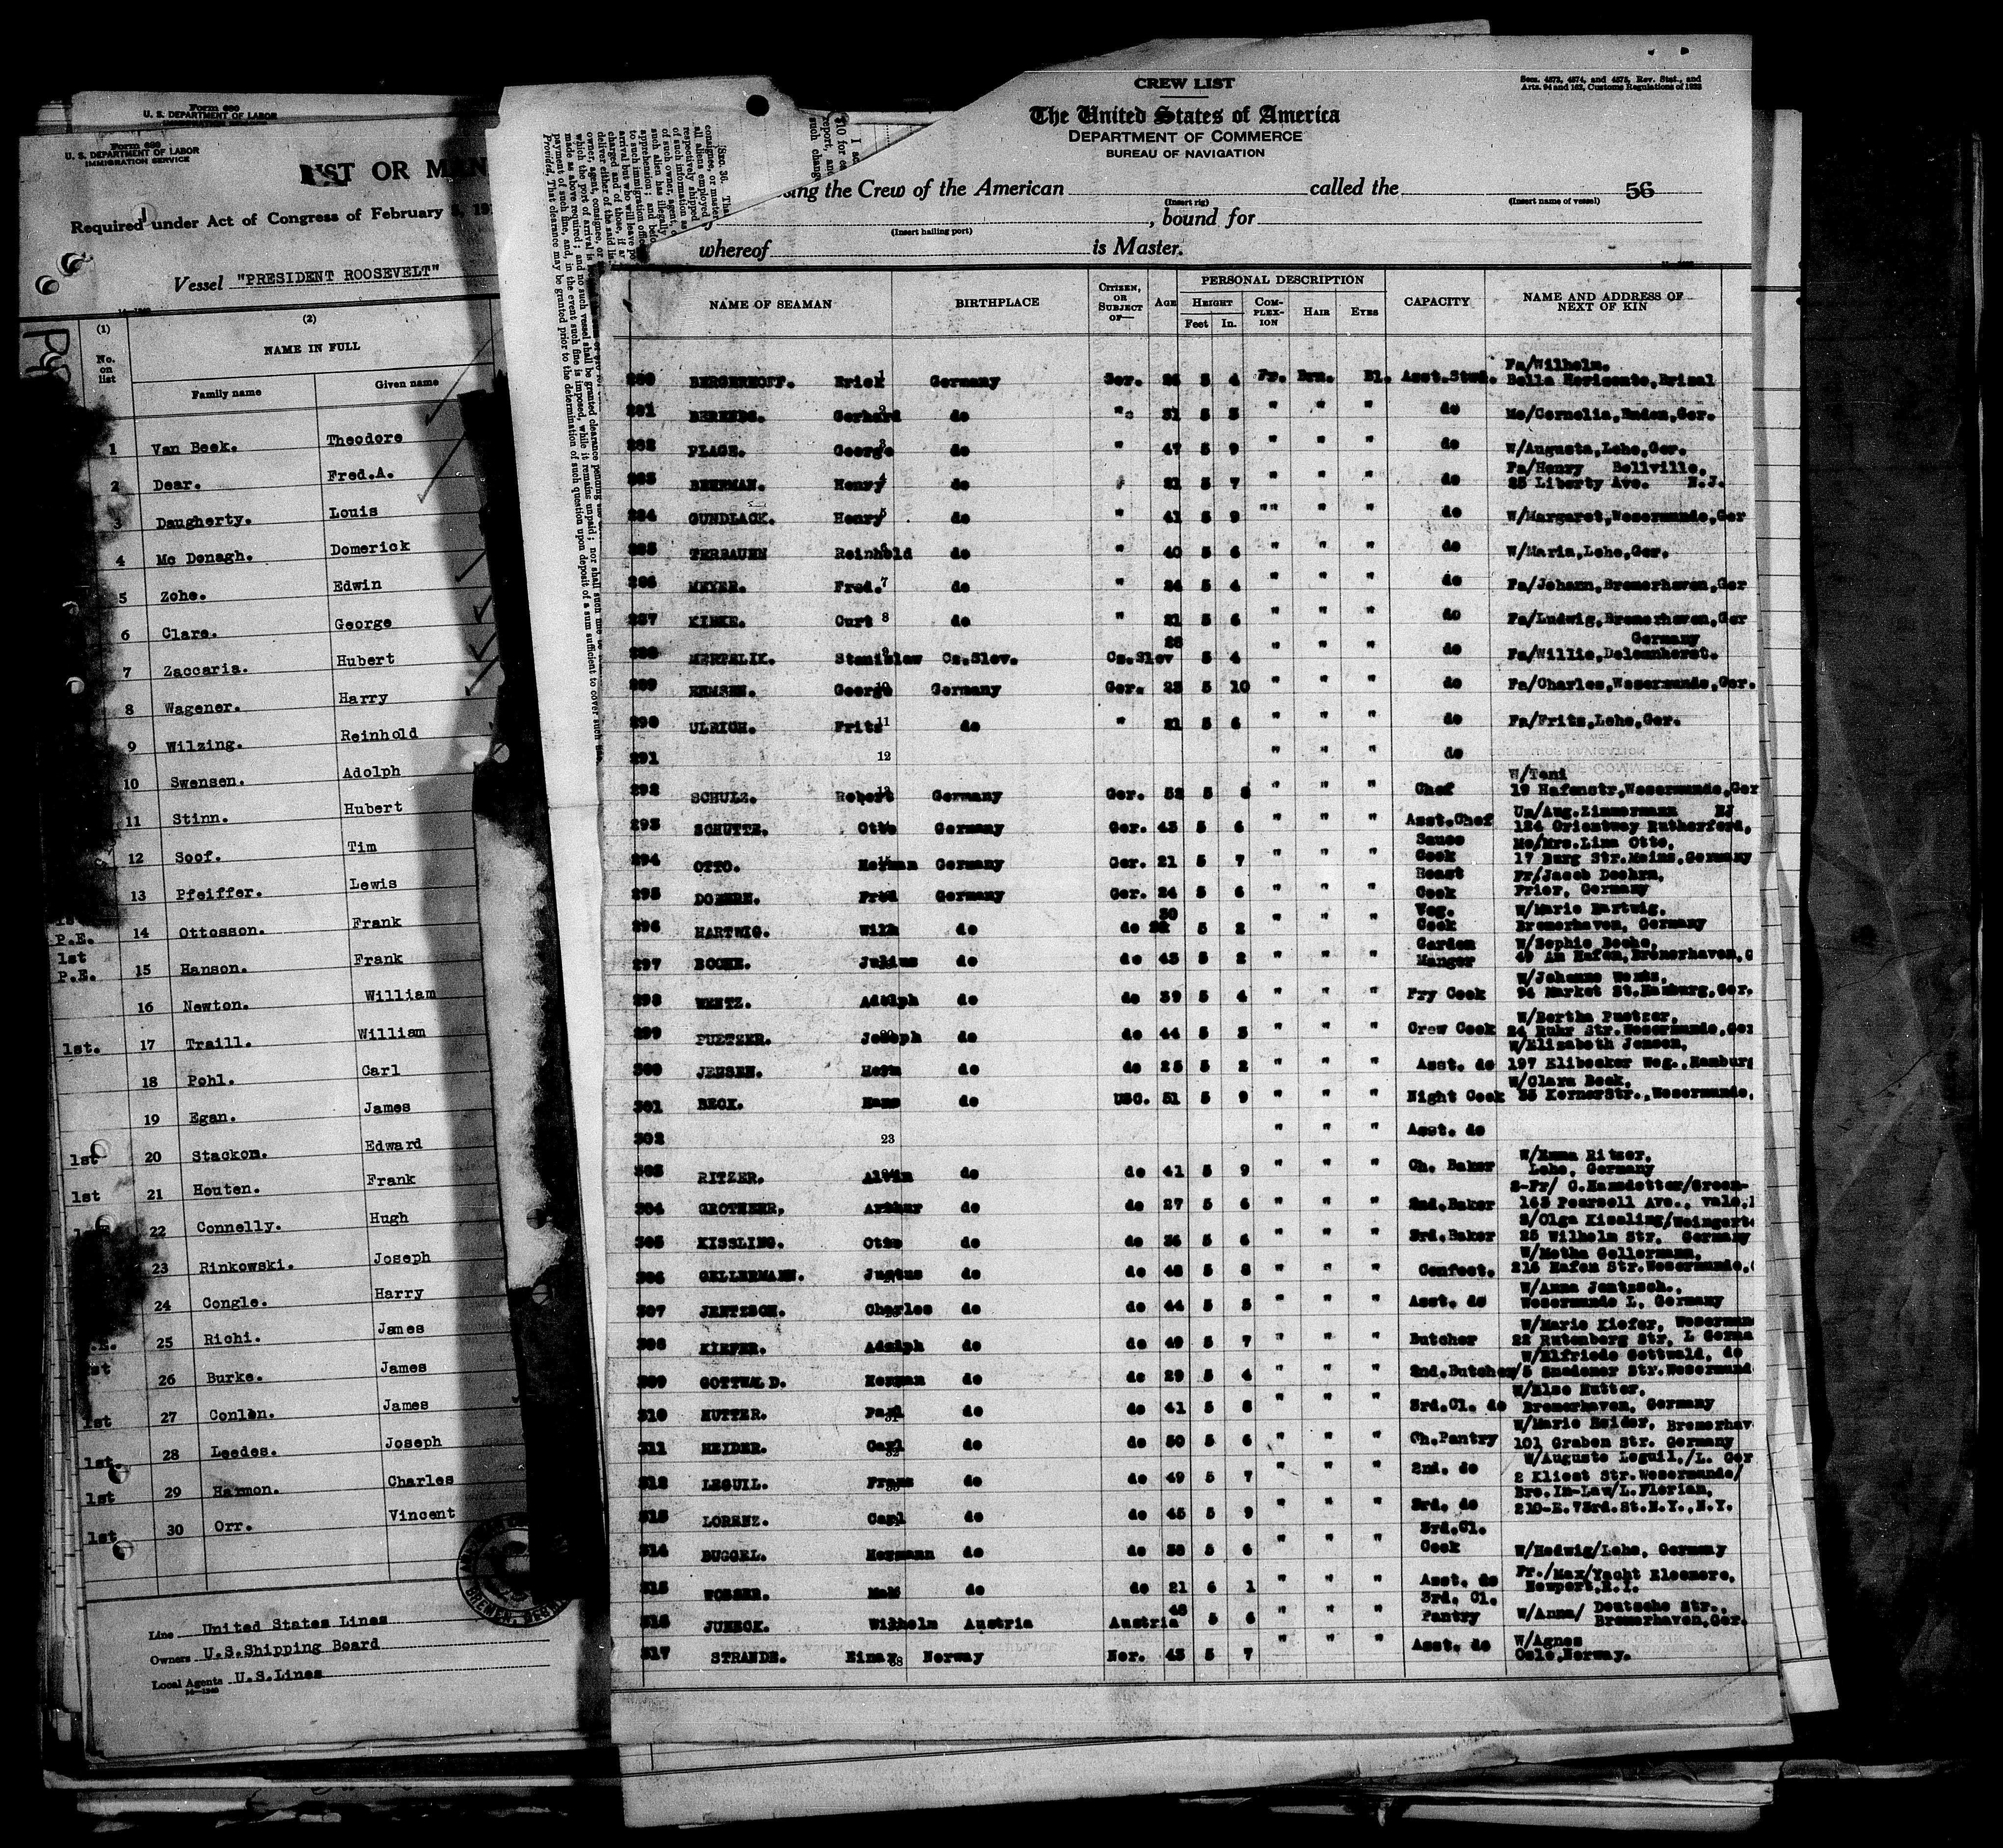 Form 680
U. S. DEPARTMENT OF LABOR
Form 680
U. S. DEPARTMENT OF LABOR
IMMIGRATION SERVICE
LIST OR MAN
Required under Act of Congress of February 5, 19
Vessel "PRESIDENT ROOSEVELT"
(1) (2)
No. on list
NAME IN FULL
Family name Given name
1 Van Beek. Theodore
2 Dear. Fred.A.
3 Daugherty. Louis
4 Mc Donagh. Domerick
5 Zohe. Edwin
6 Clare. George
7 Zaccaria. Hubert
8 Wagener. Harry
9 Wilzing. Reinhold
10 Swensen. Adolph
11 Stinn. Hubert
12 Soof. Tim
13 Pfeiffer. Lewis
P.E. 14 Ottosson. Frank
1st
P.E. 15 Hanson. Frank
16 Newton. William
1st. 17 Traill. William
18 Pohl. Carl
19 Egan. James
1st 20 Stackom. Edward
1st 21 Houten. Frank
22 Connelly. Hugh
23 Rinkowski. Joseph
24 Congle. Harry
25 Richi. James
26 Burke. James
1st 27 Conlon. James
1st. 28 Leedes. Joseph
1st 29 Harmon. Charles
1st 30 Orr. Vincent
Line United States Lines
Owners U.S.Shipping Board
Local Agents U.S.Lines
CREW LIST
Secs. 4573, 4574, and 4575, Rev. Stat., and
Arts. 94 and 162, Customs Regulations of 1923
The United States of America
DEPARTMENT OF COMMERCE
BUREAU OF NAVIGATION
sing the Crew of the American called the 56
(Insert rig) (Insert name of vessel)
, bound for
(Insert hailing port)
whereof is Master.
NAME OF SEAMAN BIRTHPLACE CITIZEN, OR SUBJECT OF— AGE PERSONAL DESCRIPTION CAPACITY NAME AND ADDRESS OF NEXT OF KIN
HEIGHT COMPLEXION HAIR EYES
Feet In.
Fa/Wilhelm.
280 BERGERHOFF. Erick Germany Ger. 5 4 Fr. Brn. Bl. Asst.Stwd. Bella Horizonte,Brizal
281 BERENDS. Gerhard do " 31 5 5 " " " do Mo/Cornelia,Emden,Ger.
282 PLAGE. George do " 47 5 9 " " " do W/Augusta,Lehe,Ger.
Fa/Henry Bellville,
283 BEHRMAN. Henry do " 21 5 7 " " " do 25 Liberty Ave. N.J.
284 GUNDLACK. Henry do " 41 5 9 " " " do W/Margaret,Wesermunde,Ger
285 TERBAUEN Reinhold do " 40 5 6 " " " do W/Maria,Lehe,Ger.
286 MEYER. Fred. 7 do " 24 5 4 " " " do Fa/Johann,Bremerhaven,Ger
287 KIEKE. Curt 8 do " 21 5 6 " " " do Fa/Ludwig,Bremerhaven,Ger
Germany
288 MERTALIK. Stanislaw Cz.Slov. Cz.Slov 28 5 4 " " " do Fa/Willie,Delemnhorst.
289 REMSEN. George Germany Ger. 23 5 10 " " " do Fa/Charles,Wesermunde,Ger.
290 ULRICH. Fritz 11 do " 21 5 6 " " " do Fa/Fritz,Lehe,Ger.
291 12 " " " do
W/Toni
292 SCHULZ. Robert Germany Ger. 52 5 " " " Chef 19 Hafenstr,Wesermunde,Ger
Un/Aug.Zimmermann NJ
293 SCHUTTE. Otto Germany Ger. 43 5 6 " " " Asst.Chef 124 Orientwey Rutherford,
Sauce Mo/Mrs.Lina Otto,
294 OTTO. Herman Germany Ger. 21 5 7 " " " Cook 17 Burg Str.Mainz,Germany
Roast Fr/Jacob Doehrn,
295 DOHERN. Fred Germany Ger. 24 5 6 " " " Cook Prier, Germany
30 Veg. W/Marie Hartwig,
296 HARTWIG. Wilh do do 5 2 " " " Cook Bremerhaven, Germany
Garden W/Sophie Boohe,
297 BOOHE. Julius do do 43 5 2 " " " Manger 49 Am Hafen,Bremerhaven,G
W/Johanne Wentz,
298 WENTZ. Adolph do do 39 5 4 " " " Fry Cook 94 Market St.Hamburg,Ger.
W/Bertha Puetzer,
299 PUETZER. Joseph do do 44 5 5 " " " Crew Cook 24 Ruhr Str.Wesermunde,Ger
W/Elizabeth Jensen,
300 JENSEN. Herm do do 25 5 2 " " " Asst. do 197 Elibecker Weg.,Hamburg
W/Clara Beck,
301 BECK. Hans do USC. 51 5 9 " " " Night Cook 35 KornerStr.,Wesermunde,
302 23 " " " Asst. do
W/Emma Ritzer,
303 RITZER. Alvin do do 41 5 9 " " " Ch. Baker Lehe, Germany
S-Fr/ C.Hamdetter/Green-
304 GROTHEER. Arthur do do 27 5 6 " " " 2nd.Baker 163 Pearsell Ave., vale,
S/Olga Kissling/Weingart
305 KISSLING. Otto do do 36 5 6 " " " 3rd.Baker 25 Wilhelm Str. Germany
W/Metha Gellermann,
306 GELLERMANN. Justus do do 48 5 8 " " " Confect. 216 Hafen Str.Wesermunde,
W/Anna Jentzsch.,
307 JENTZSCH. Charles do do 44 5 5 " " " Asst. do Wesermunde L, Germany
W/Marie Kiefer, Wesermun
308 KIEFER. Adolph do do 49 5 7 " " " Butcher 22 Rutenberg Str. L Germa
W/Elfriede Gottwald, do
309 GOTTWALD. Herman do do 29 5 4 " " " 2nd.Butcher/5 Str.Wesermund
W/Else Hutter,
310 HUTTER. Paul do do 41 5 8 " " " 3rd.Cl. do Bremerhaven, Germany
W/Marie Heider, Bremerhav
311 HEIDER. Carl do do 50 5 6 " " " Ch.Pantry 101 Graben Str. Germany
W/Auguste Leguil,/L. Ger
312 LEGUIL. Franz do do 49 5 7 " " " 2nd. do 2 Kliest Str.Wesermunde/
Bro.In-Law/L.Florian,
313 LORENZ. Carl do do 45 5 9 " " " 3rd. do 210-E.73rd.St.N.Y.,N.Y.
3rd.Cl.
314 BUGGEL. Hermann do do 38 5 6 " " " Cook W/Hedwig/Lehe, Germany
Fr./Max/Yacht Eleemore,
315 WOBSER. Max do do 21 6 1 " " " Asst. do Newport,R.I.
3rd. Cl.
316 JUNECK. Wilhelm Austria Austria 48 5 6 " " " Pantry W/Anna/ Deutsche Str., Bremerhaven,Ger.
317 STRANDE. Einar 38 Norway Nor. 43 5 7 " " " Asst. do W/Agnes
Oslo,Norway.